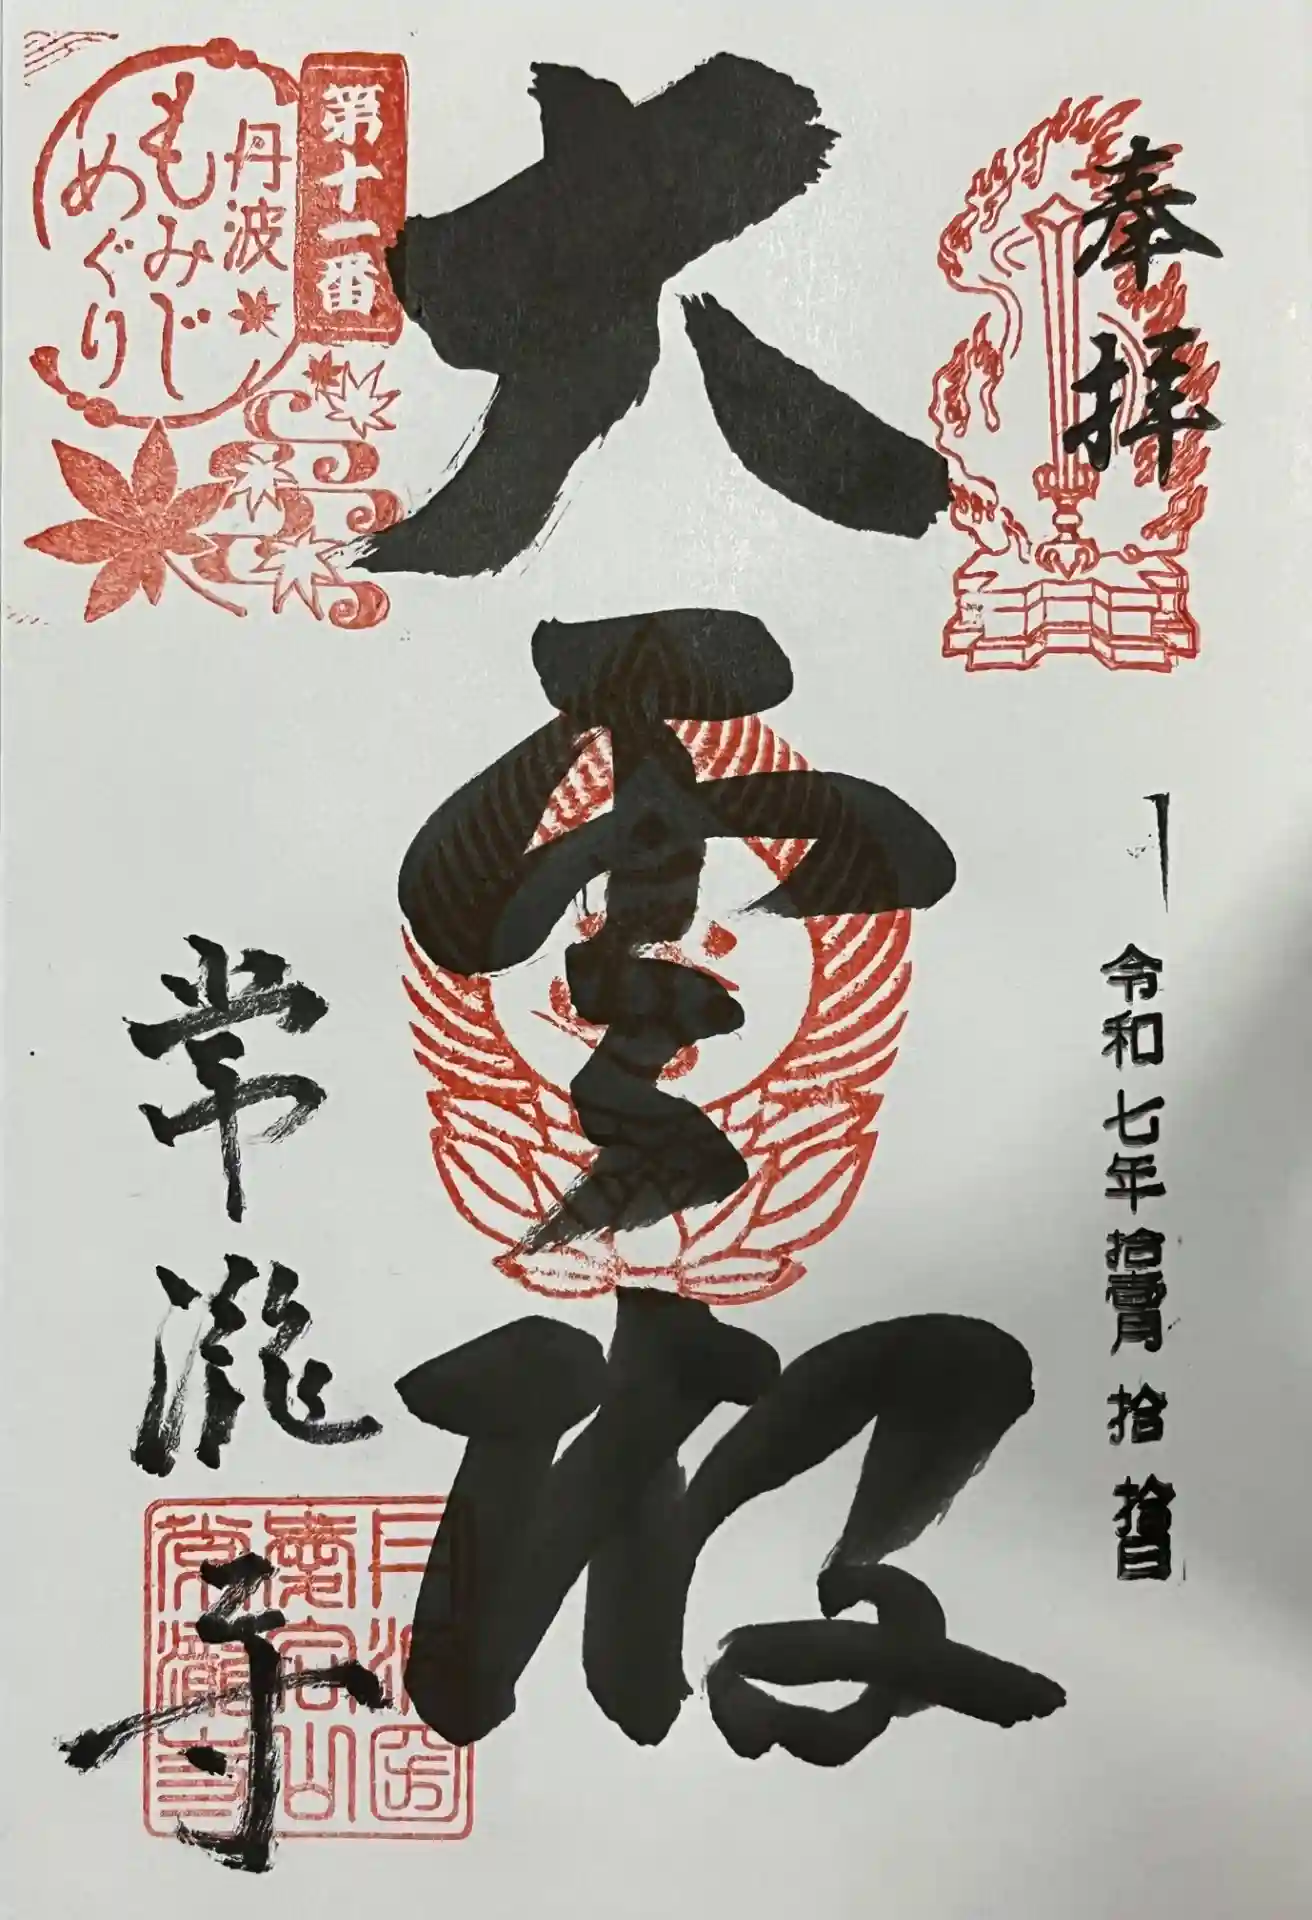 奉拝
令和七年拾壹月拾
大
第十一番
丹波
もみじ
めぐり
常瀧寺
常瀧寺